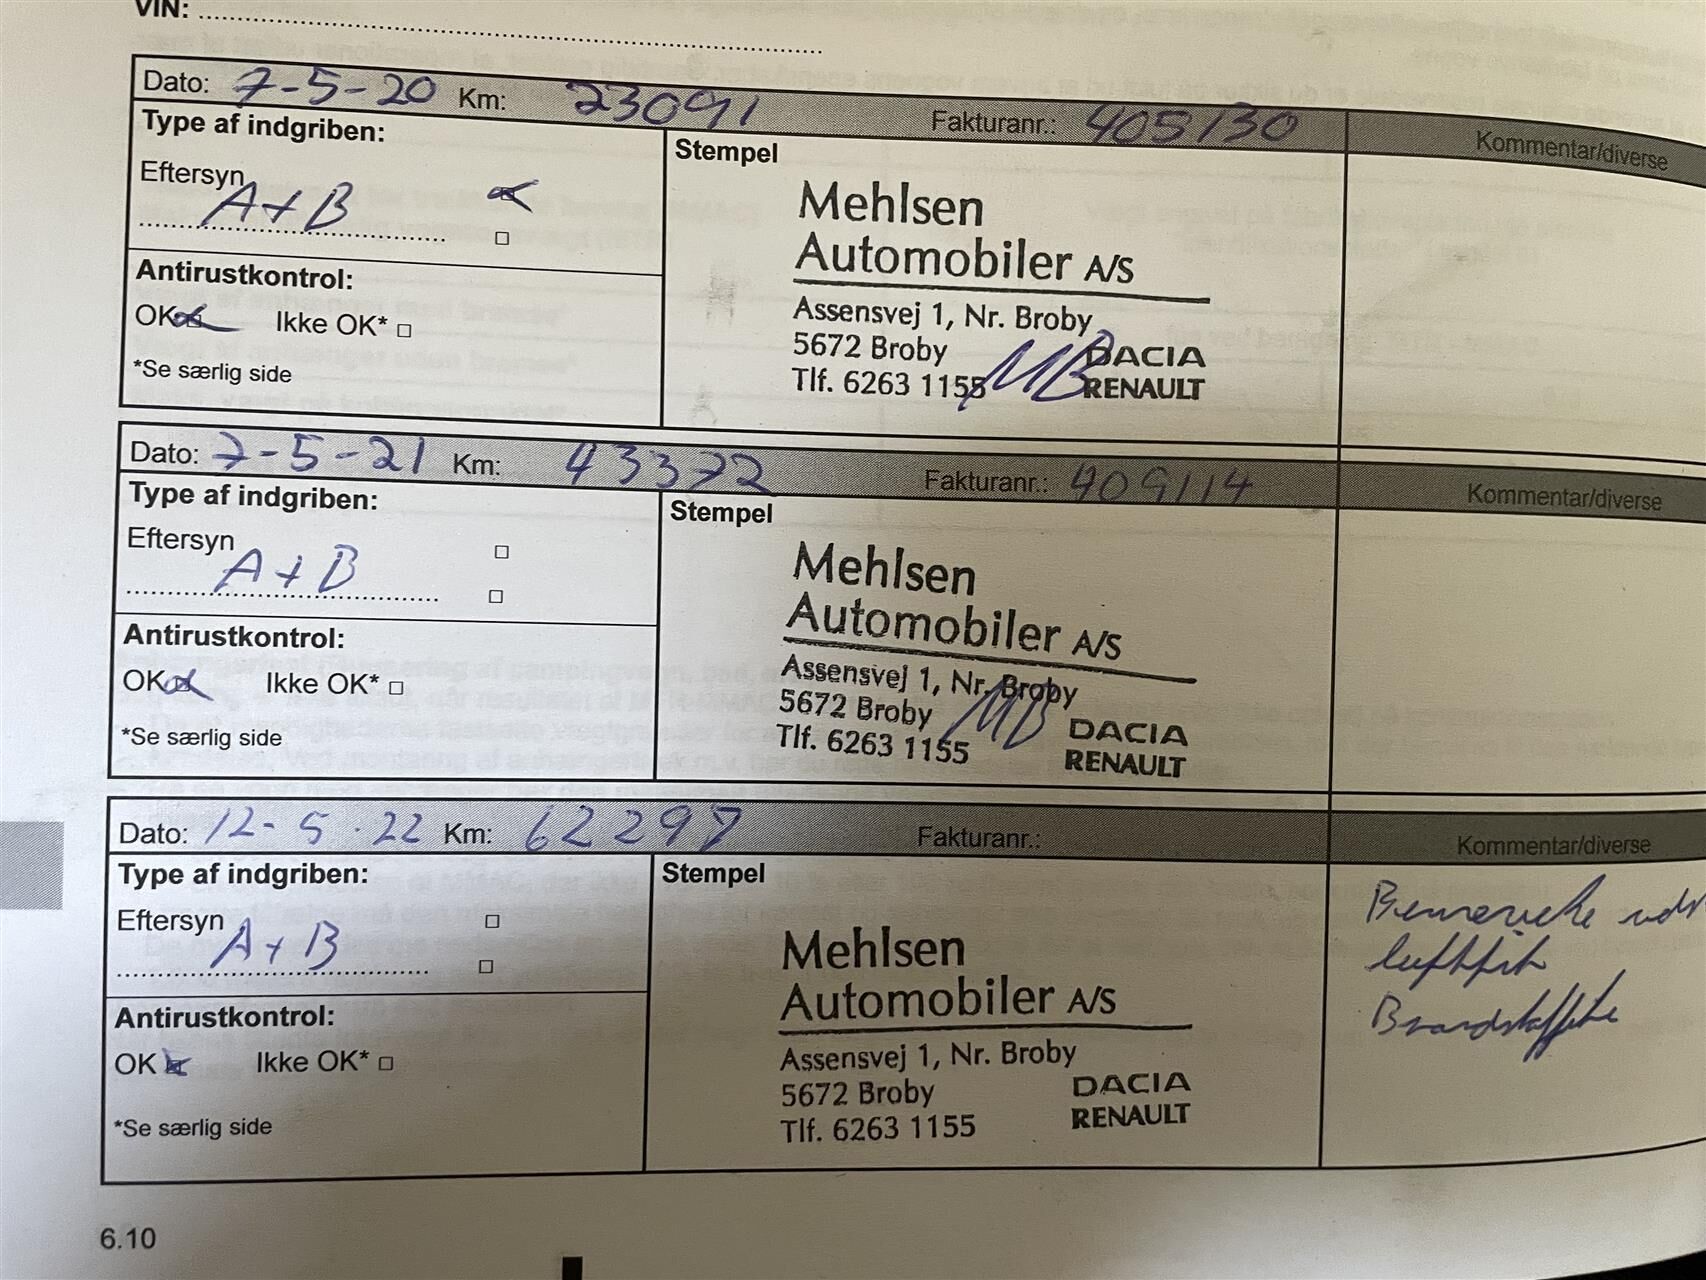 VIN:
Dato: 7-5-20 Km: 23091 Fakturanr.: 405130 Kommentar/diverse
Type af indgriben:
Stempel
Eftersyn
A+B
Mehlsen
Automobiler A/S
Antirustkontrol:
OK Ikke OK*
*Se særlig side
Assensvej 1, Nr. Broby
5672 Broby
Tlf. 6263 1155
MB
DACIA
RENAULT
Dato: 7-5-21 Km: 43372 Fakturanr.: 409114 Kommentar/diverse
Type af indgriben:
Stempel
Eftersyn
A+B
Mehlsen
Automobiler A/S
Antirustkontrol:
OK Ikke OK*
*Se særlig side
Assensvej 1, Nr. Broby
5672 Broby
Tlf. 6263 1155
MB
DACIA
RENAULT
Dato: 12-5-22 Km: 62297 Fakturanr.: Kommentar/diverse
Type af indgriben:
Stempel
Eftersyn
A+B
Mehlsen
Automobiler A/S
Antirustkontrol:
OK Ikke OK*
*Se særlig side
Assensvej 1, Nr. Broby
5672 Broby
Tlf. 6263 1155
DACIA
RENAULT
luftfilt
6.10